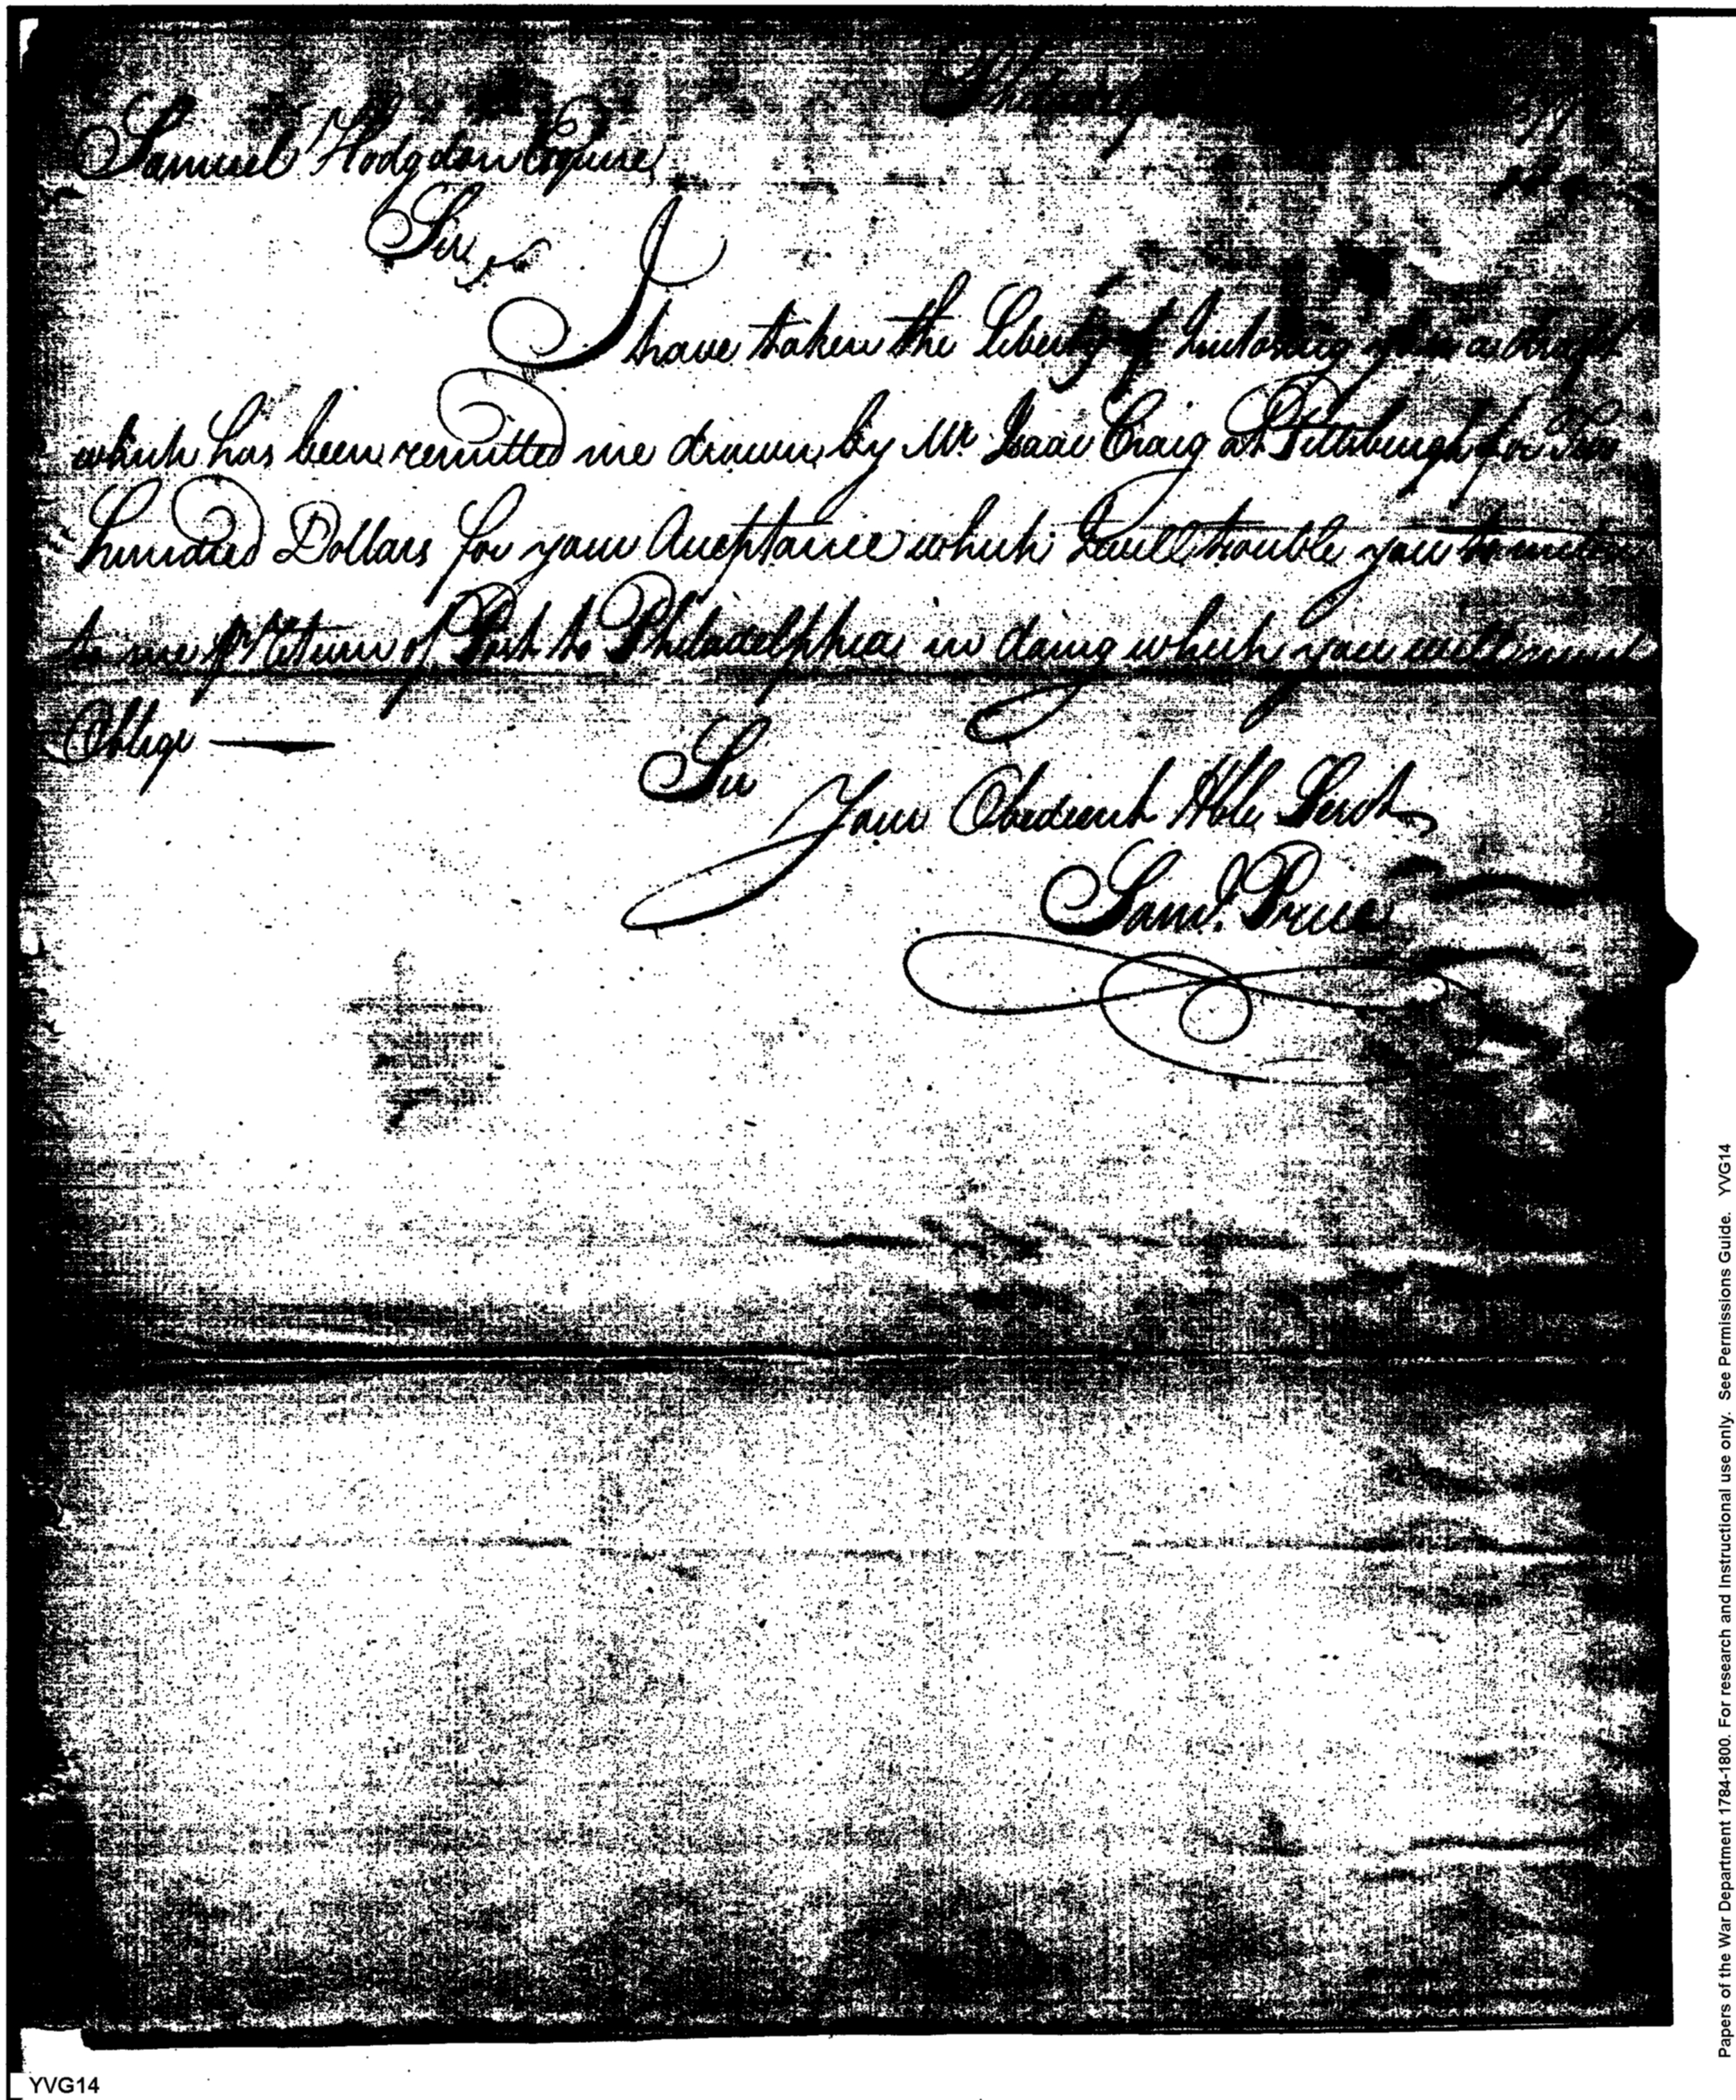 Samuel Hodgdon Esquire
Sir
I have taken the Liberty of Inclosing you a draft
which has been remitted me drawn by Mr Isaac Craig at Pittsburgh for Two
hundred Dollars for your Acceptance which I will trouble you to
to me pr Return of Post to Philadelphia in doing which you will much
Oblige —
Sir
Your Obedient Hble Servt
Saml. Price
Papers of the War Department 1784-1800. For research and Instructional use only. See Permissions Guide. YVG14
YVG14